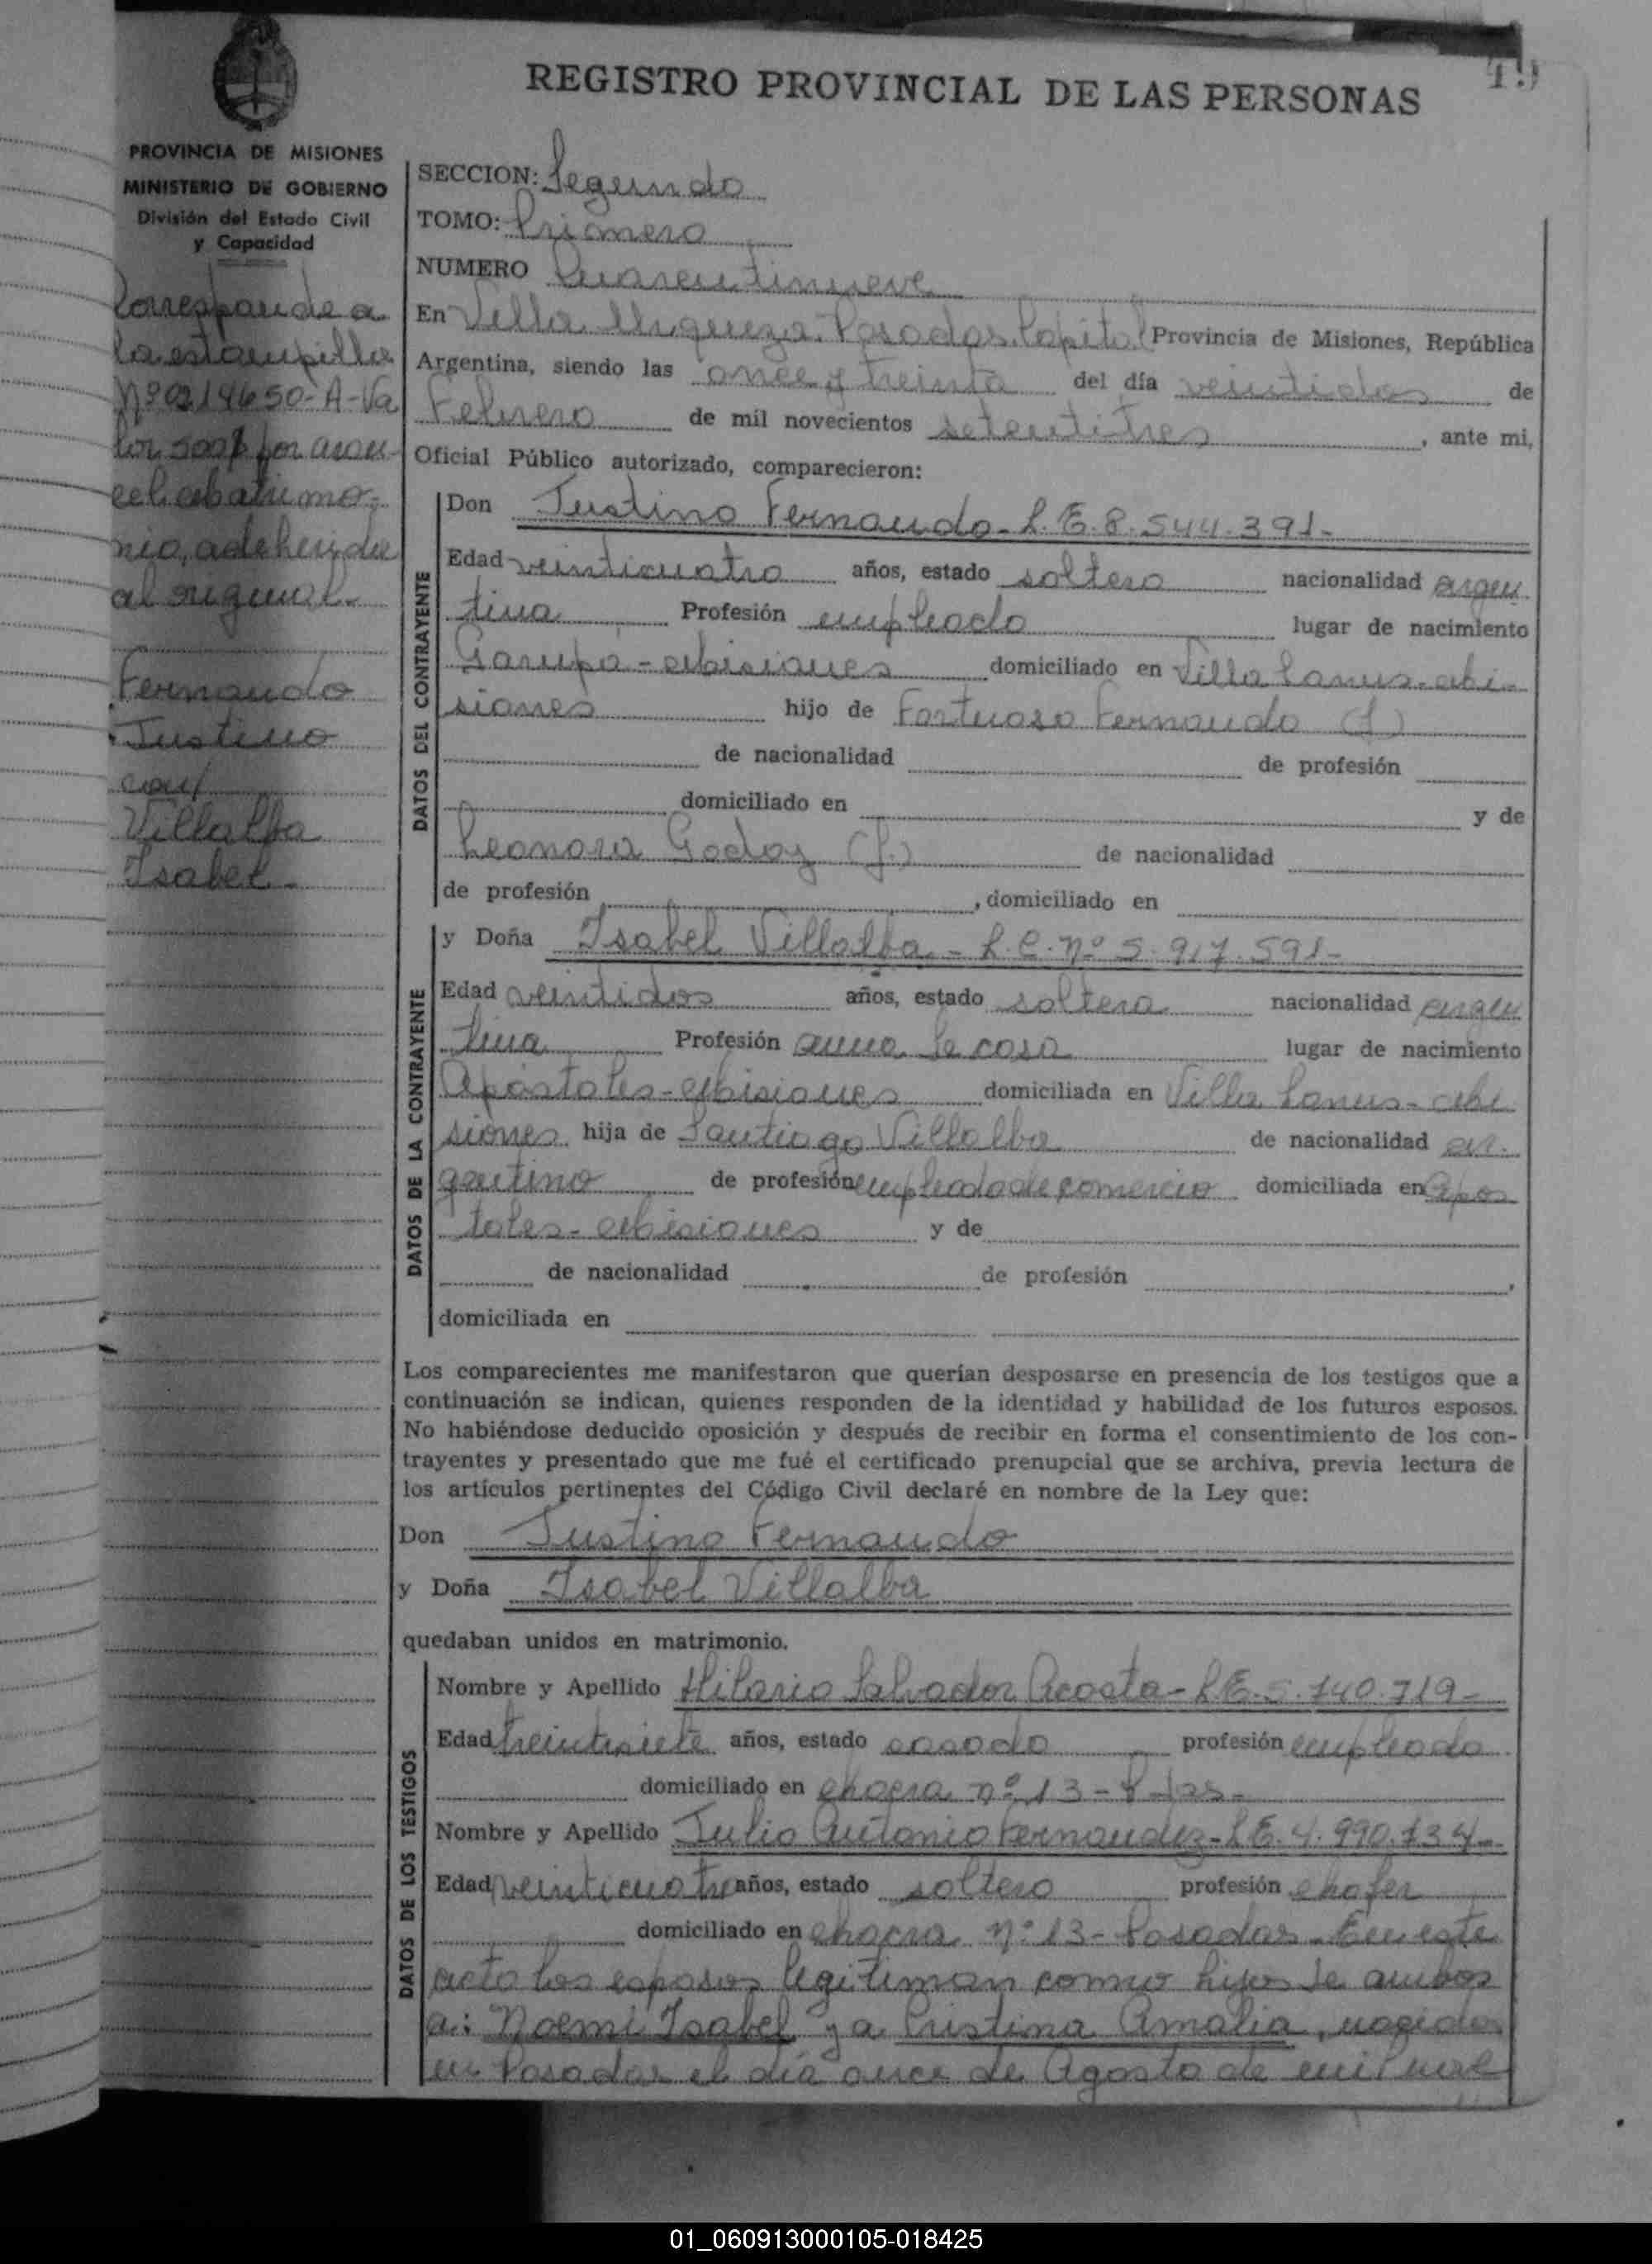 49
REGISTRO PROVINCIAL DE LAS PERSONAS
PROVINCIA DE MISIONES
MINISTERIO DE GOBIERNO
División del Estado Civil
y Capacidad
Corresponde a
la estampilla
Nº 0214650-A-Va
lor 500$ por aran
cel matrimo-
nio, adherida
al original.
Fernando
Justino
con
Villalba
Isabel
SECCION: Segundo
TOMO: Primero
NUMERO Cuarentinueve
En Villa Urquiza. Posadas. Capital Provincia de Misiones, República
Argentina, siendo las once y treinta del día veintidos de
Febrero de mil novecientos setentitres, ante mi,
Oficial Público autorizado, comparecieron:
DATOS DEL CONTRAYENTE
Don Justino Fernando - L.E. 8.544.391-
Edad veinticuatro años, estado soltero nacionalidad argen
tina Profesión empleado lugar de nacimiento
Garupá - Misiones domiciliado en Villa Lanus - Mi-
siones hijo de Fortuoso Fernando (f)
de nacionalidad de profesión
domiciliado en y de
Leonora Godoy (f.) de nacionalidad
de profesión , domiciliado en
DATOS DE LA CONTRAYENTE
y Doña Isabel Villalba - L.C. nº 5.917.591-
Edad veintidos años, estado soltera nacionalidad argen
tina Profesión ama de casa lugar de nacimiento
Apostoles - Misiones domiciliada en Villa Lanus - Mi
siones hija de Santiago Villalba de nacionalidad ar-
gentino de profesión empleado de comercio domiciliada en Apos
toles - Misiones y de
de nacionalidad de profesión ,
domiciliada en
Los comparecientes me manifestaron que querían desposarse en presencia de los testigos que a
continuación se indican, quienes responden de la identidad y habilidad de los futuros esposos.
No habiéndose deducido oposición y después de recibir en forma el consentimiento de los con-
trayentes y presentado que me fué el certificado prenupcial que se archiva, previa lectura de
los artículos pertinentes del Código Civil declaré en nombre de la Ley que:
Don Justino Fernando
y Doña Isabel Villalba
quedaban unidos en matrimonio.
DATOS DE LOS TESTIGOS
Nombre y Apellido Hilario Salvador Acosta - L.E. 5.740.719-
Edad treintisiete años, estado casado profesión empleado
domiciliado en chacra nº 13 - P-das-
Nombre y Apellido Julio Antonio Fernandez - L.E. 4.990.734-
Edad veinticuatro años, estado soltero profesión chofer
domiciliado en chacra nº 13 - Posadas - En este
acto los esposos legitiman como hijos de ambos
a: Noemi Isabel y a Cristina Amalia, nacidas
en Posadas el día once de Agosto de mil nove
01_060913000105-018425